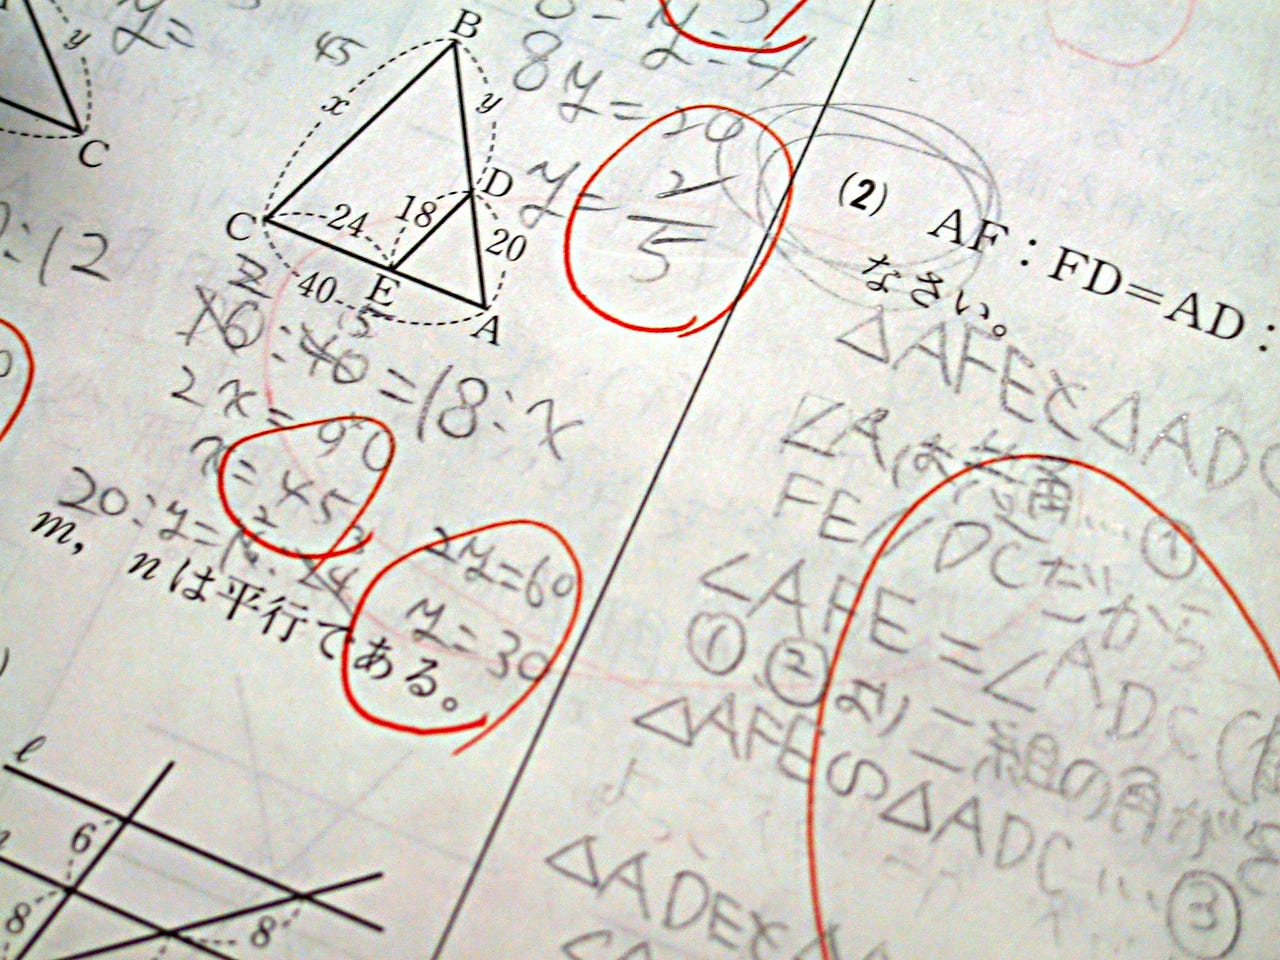 y
y=
C
:12
B
45
x
y
D
18
24
20
C
E
40
A
16:40=18:x
2
5
2x=90
x=45
20:y=16:24
2
3
2y=60
y=30
y=4
8y=20
y=2/5
m, nは平行である。
ℓ
6
8
8
(2) AF:FD=AD:
なさい。
△AFEと△ADC
∠Aは共通…①
FE//DCだから
∠AFE=∠ADC(
①②より二組の角が
△AFE∽△ADC…③
△ADEと△